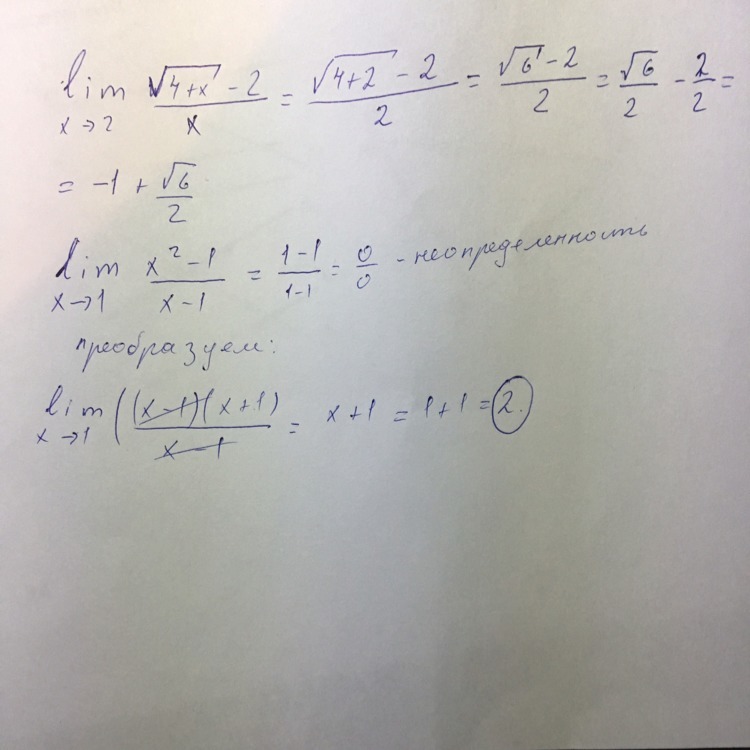 lim x→2 (√(4+x) - 2)/x = (√(4+2) - 2)/2 = (√6 - 2)/2 = √6/2 - 2/2 =
= -1 + √6/2
lim x→1 (x² - 1)/(x - 1) = (1-1)/(1-1) = 0/0 - неопределенность
преобразуем:
lim x→1 ((x-1)(x+1)/(x-1) = x+1 = 1+1 = 2.